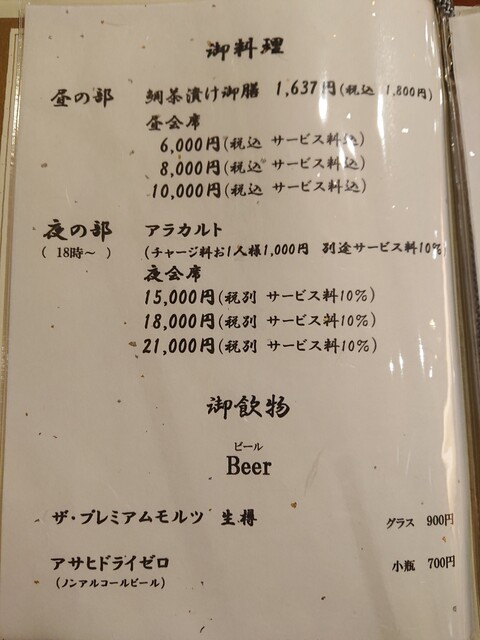 御料理
昼の部 鯛茶漬け御膳 1,637円(税込 1,800円)
昼会席
6,000円(税込 サービス料込)
8,000円(税込 サービス料込)
10,000円(税込 サービス料込)
夜の部 アラカルト
( 18時〜 ) (チャージ料お1人様1,000円 別途サービス料10%
夜会席
15,000円(税別 サービス料10%)
18,000円(税別 サービス料10%)
21,000円(税別 サービス料10%)
御飲物
ビール
Beer
ザ・プレミアムモルツ 生樽 グラス 900円
アサヒドライゼロ 小瓶 700円
(ノンアルコールビール)